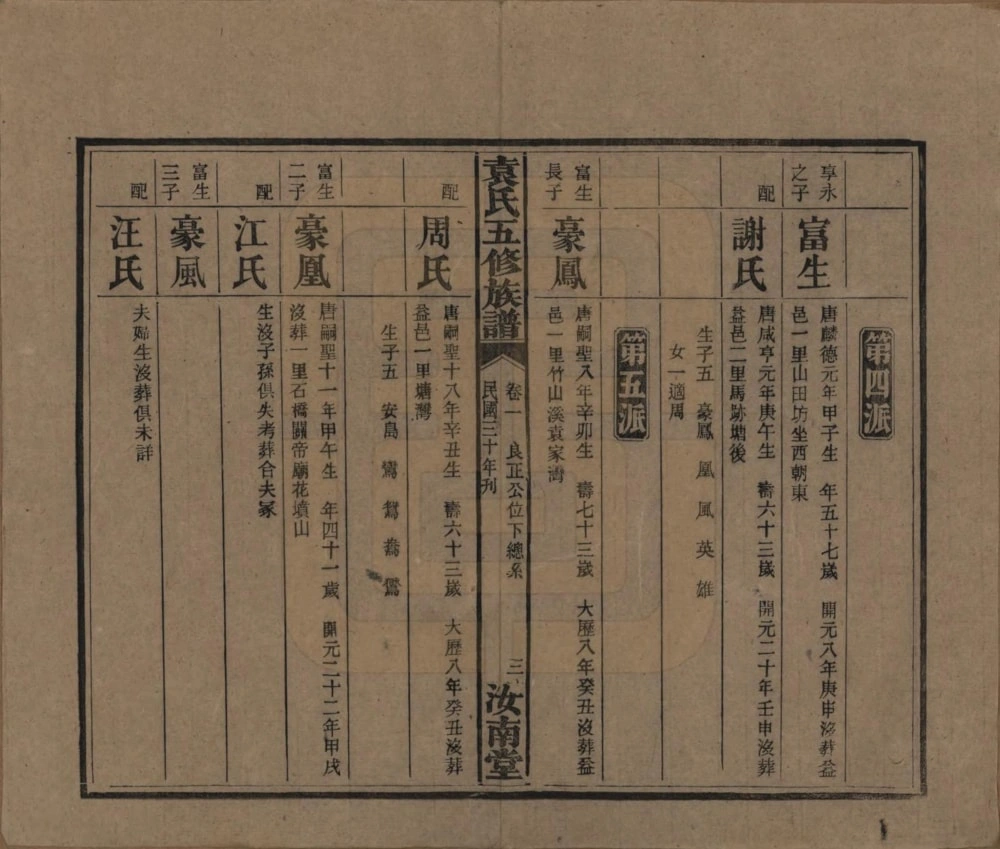 第四派
享永之子
富生
唐麟德元年甲子生 年五十七歲 開元八年庚申沒葬益
邑一里山田坊坐西朝東
配
謝氏
唐咸亨元年庚午生 壽六十三歲 開元二十年壬申沒葬
益邑二里馬跡塘後
生子五 豪鳳 凰 風 英 雄
女一適周
第五派
富生長子
豪鳳
唐嗣聖八年辛卯生 壽七十三歲 大歷八年癸丑沒葬益
邑一里竹山溪袁家灣
袁氏五修族譜
卷一 良正公位下總系 三
民國三十年刊
汝南堂
配
周氏
唐嗣聖十八年辛丑生 壽六十三歲 大歷八年癸丑沒葬
益邑一里塘灣
生子五 安島 鸞 鴛 鴦
富生二子
豪凰
唐嗣聖十一年甲午生 年四十一歲 開元二十二年甲戌
沒葬一里石橋關帝廟花墳山
配
江氏
生沒子孫俱失考葬合夫冢
富生三子
豪風
配
汪氏
夫婦生沒葬俱未詳